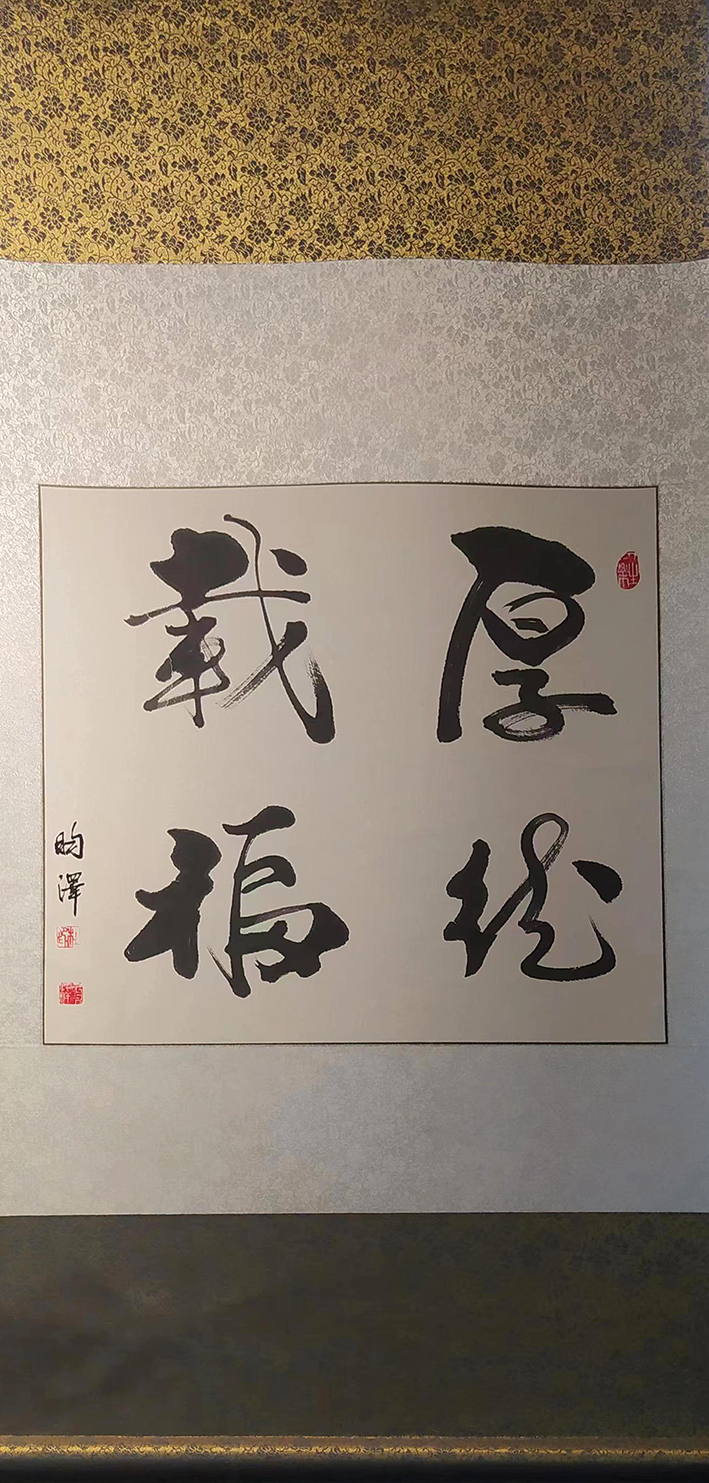 厚德
载福
昀澤